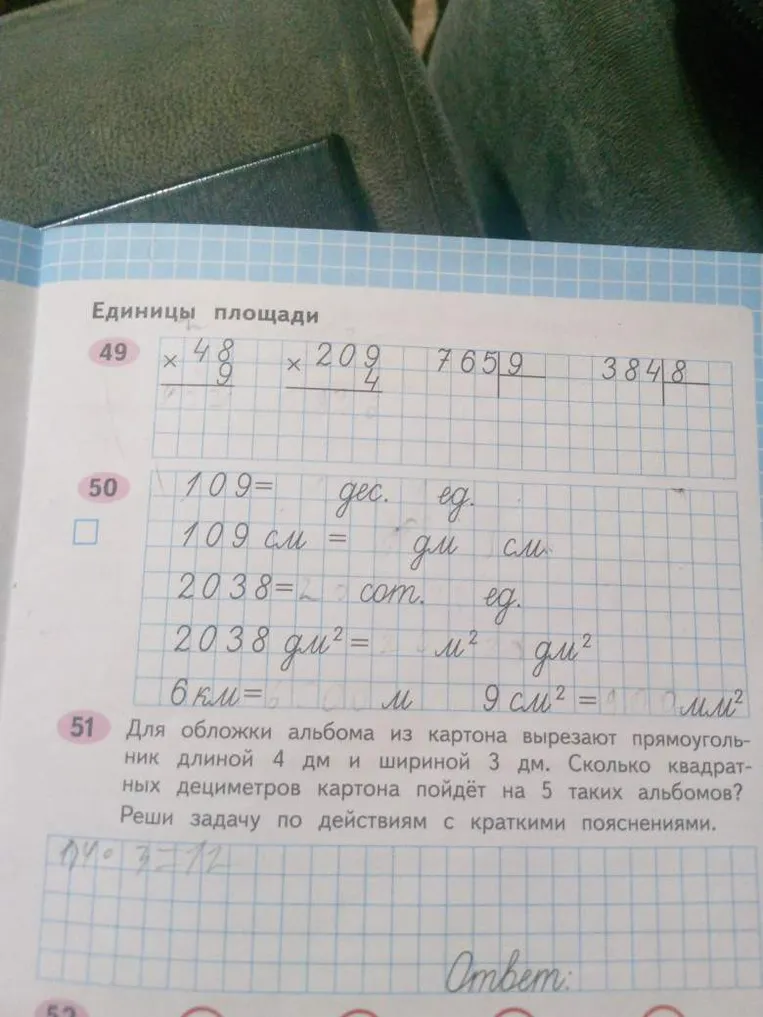 Единицы площади
49 × 48 × 209 765 9 384 8
9 4
50 109= дес. ед.
109 см = дм см
2038= сот. ед.
2038 дм² = м² дм²
6 км= м 9 см² = мм²
51 Для обложки альбома из картона вырезают прямоуголь-
ник длиной 4 дм и шириной 3 дм. Сколько квадрат-
ных дециметров картона пойдёт на 5 таких альбомов?
Реши задачу по действиям с краткими пояснениями.
1) 4 · 3 = 12
Ответ:
52